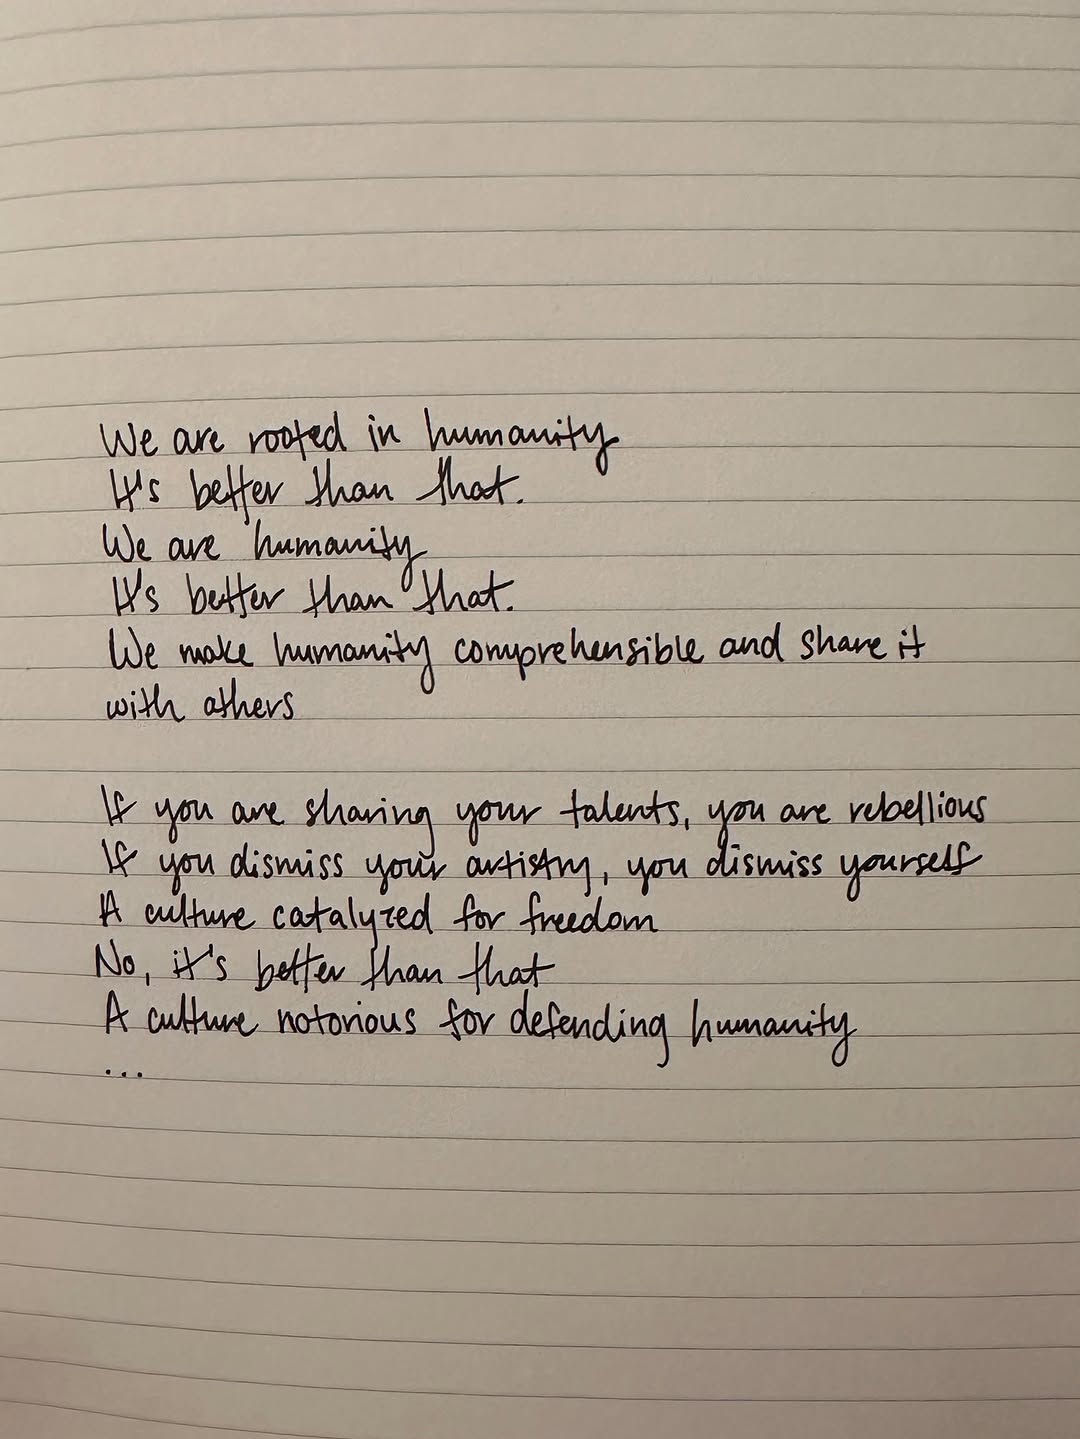 We are rooted in humanity
It's better than that.
We are humanity
It's better than that.
We make humanity comprehensible and share it
with others
If you are sharing your talents, you are rebellious
If you dismiss your artistry, you dismiss yourself
A culture catalyzed for freedom
No, it's better than that
A culture notorious for defending humanity
...